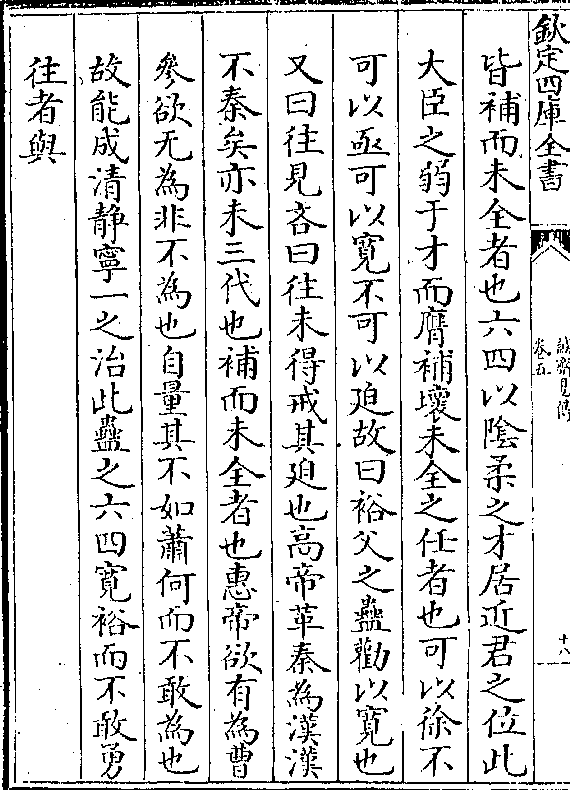 欽定四庫全書
誠齋易傳
卷五
十八
皆補而未全者也六四以陰柔之才居近君之位此
大臣之弱于才而膺補壞未全之任者也可以徐不
可以亟可以寛不可以廹故曰裕父之蠱勸以寛也
又曰往見吝曰往未得戒其廹也高帝革秦為漢漢
不秦矣亦未三代也補而未全者也惠帝欲有為曹
參欲无為非不為也自量其不如蕭何而不敢為也
故能成清静寧一之治此蠱之六四寛裕而不敢勇
往者與